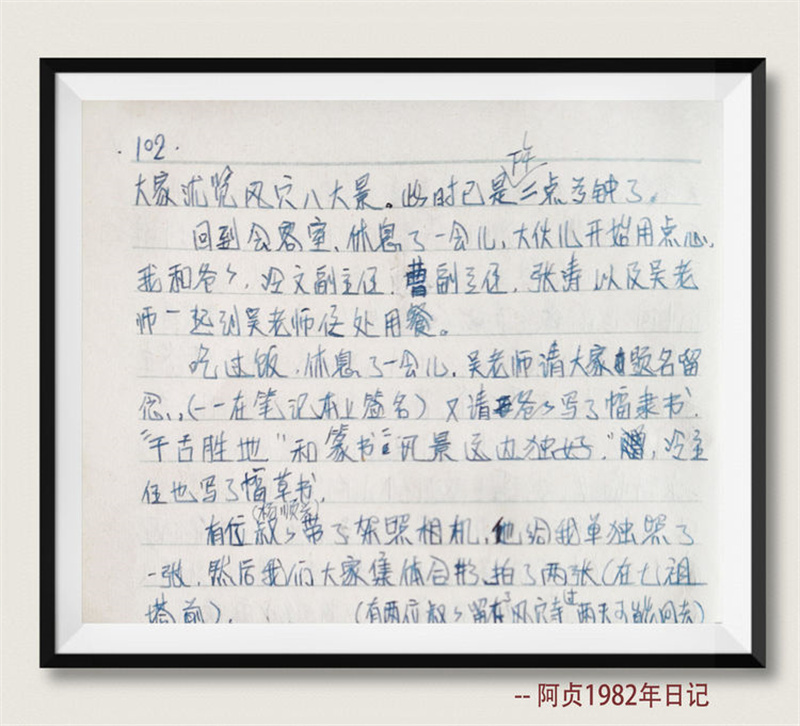 102.
下午
大家浏览风穴八大景。此时已是二点多钟了。
回到会客室,休息了一会儿,大伙儿开始用点心,
我和爷々,冷文副主任,曹副主任,张涛以及吴老
师一起到吴老师住处用餐。
吃过饭,休息了一会儿,吴老师请大家题名留
念,(一一在笔记本上签名)又请爷々写了幅隶书,
“千古胜地”和篆书“风景这边独好”,冷主
任也写了幅草书。
(杨顺)
有位叔々带了架照相机,他给我单独照了
一张,然后我们大家集体合影,拍了两张(在七祖
塔前)。(有两位叔々留在了风穴寺过两天才能回去)
-- 阿贞1982年日记